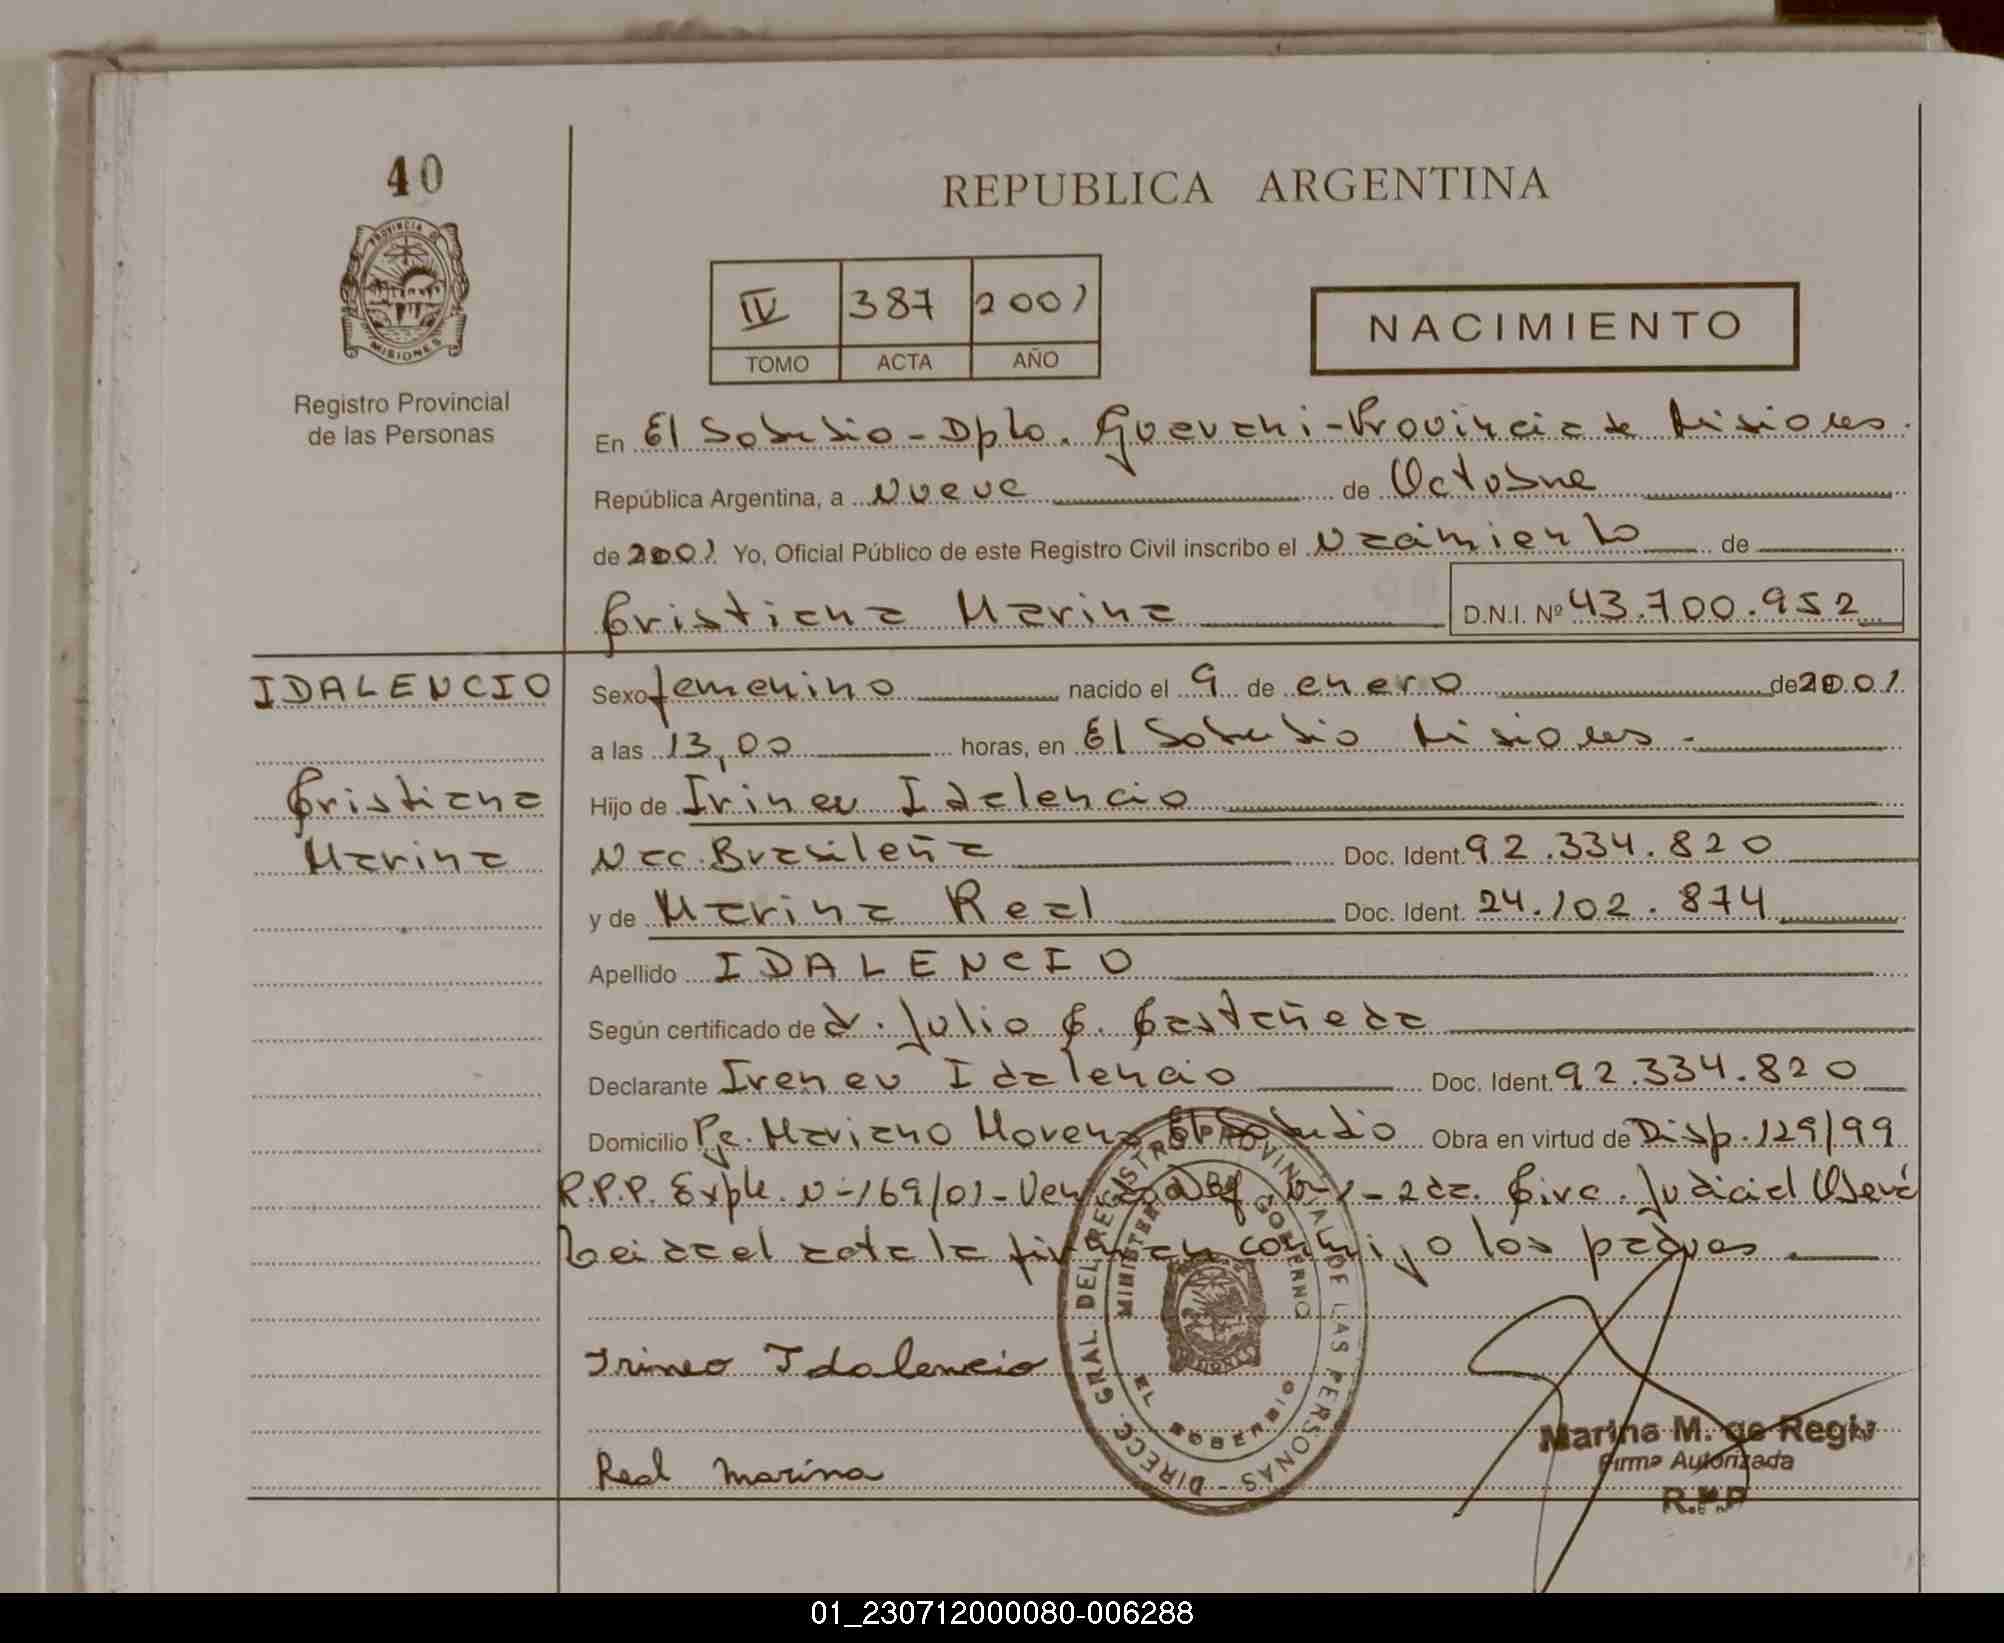 40
PROVINCIA DE
MISIONES
Registro Provincial
de las Personas
REPUBLICA ARGENTINA
IV 387 2001
TOMO ACTA AÑO
NACIMIENTO
En El Soberbio - Dpto. Guarani - Provincia de Misiones.
República Argentina, a Nueve de Octubre
de 2001 Yo, Oficial Público de este Registro Civil inscribo el Nacimiento de
Cristiana Marina D.N.I. Nº 43.700.952
IDALENCIO
Cristiana
Marina
Sexo femenino nacido el 9 de enero de 2001
a las 13,00 horas, en El Soberbio Misiones -
Hijo de Irineu Idalencio
Nac. Brasileña Doc. Ident. 92.334.820
y de Marina Real Doc. Ident. 24.102.874
Apellido IDALENCIO
Según certificado de dr. Julio C. Castañeda
Declarante Ireneu Idalencio Doc. Ident. 92.334.820
Domicilio Pje. Mariano Moreno El Soberbio Obra en virtud de Disp. 129/99
R.P.P. Expte. N-169/01 - N-1 - 2da. Circ. Judicial Oberá
Leida el acta la firman conmigo los padres.
Irineo Idalencio
Real marina
DIRECC. GRAL. DEL REGISTRO PROVINCIAL DE LAS PERSONAS -
MINISTERIO DE GOBIERNO
EL SOBERBIO
MISIONES
Marina M. de
Firma Autorizada
R.P.P
01_230712000080-006288